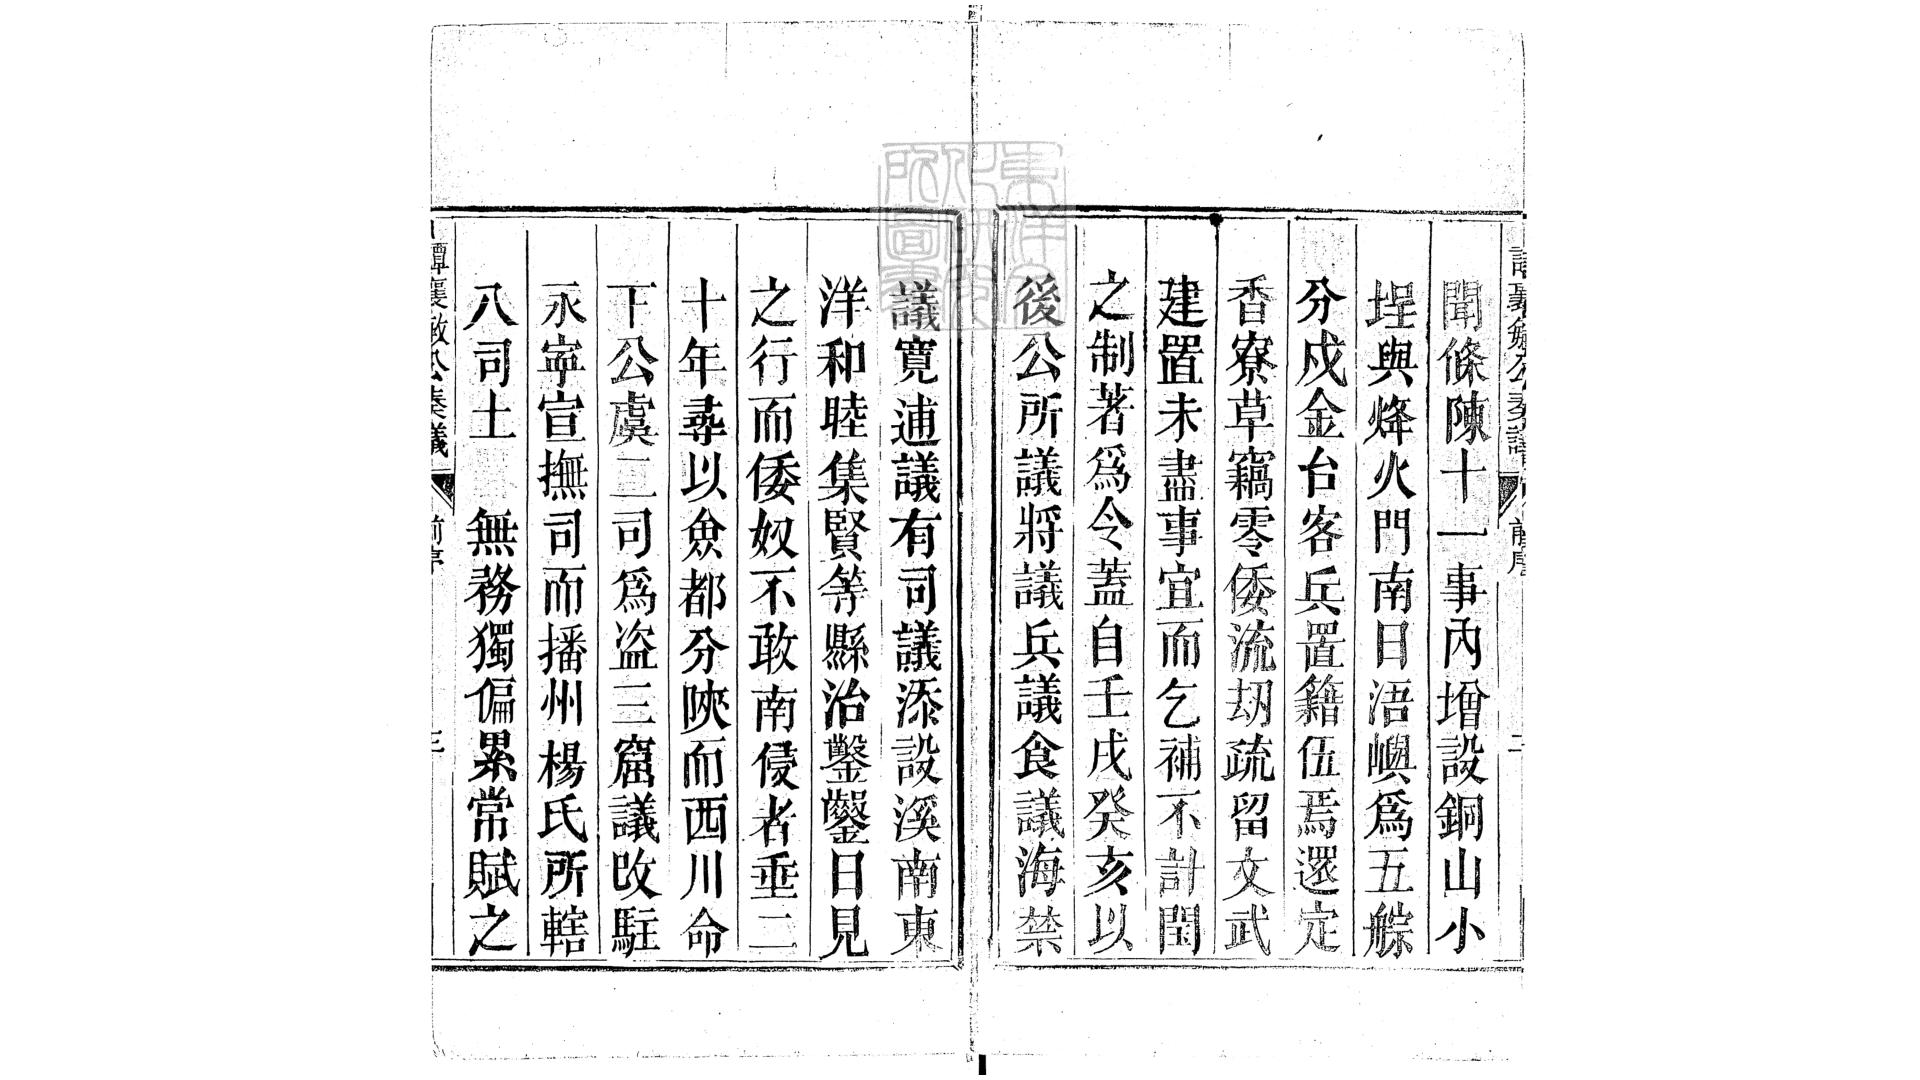 譚襄敏公奏議 前序 二
聞條陳十一事內增設銅山小
埕與烽火門南日浯嶼爲五䑸
分戍金台客兵置籍伍焉還定
香寮草竊零倭流刼疏留文武
建置未盡事宜而乞補不計閏
之制著爲令蓋自壬戌癸亥以
後公所議將議兵議食議海禁
議寬逋議有司議添設溪南東
洋和睦集賢等縣治鑿鑿日見
之行而倭奴不敢南侵者垂二
十年尋以僉都分陝而西川命
下公虞三司爲盜三窟議改駐
永寧宣撫司而播州楊氏所轄
八司土 無務獨偏累常賦之
譚襄敏公奏議 前序 三